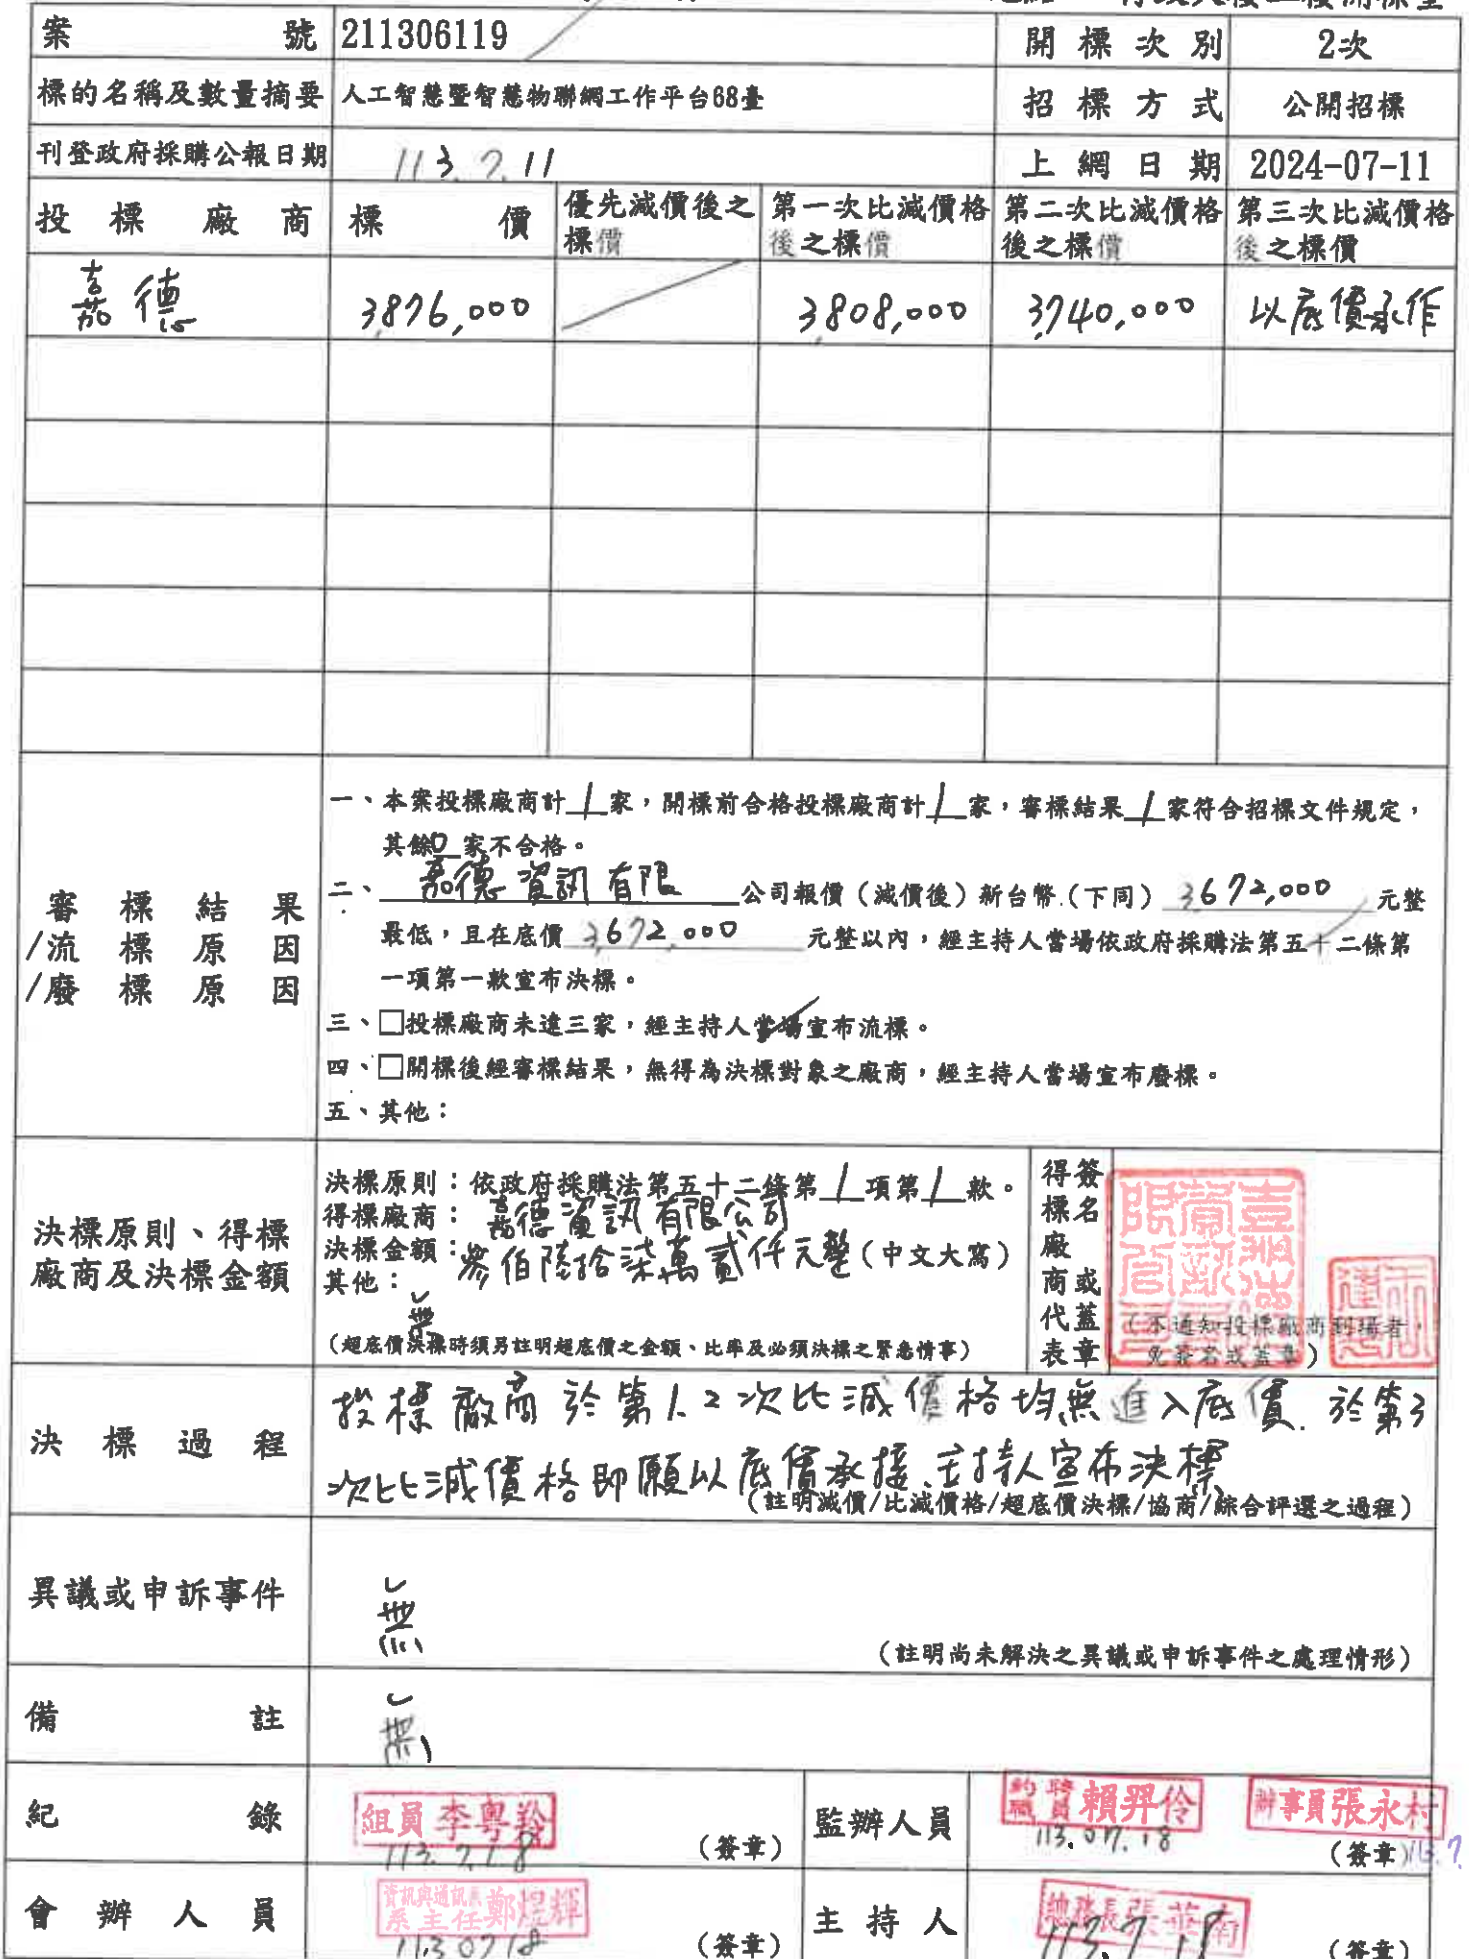 案號 211306119 開標次別 2次
標的名稱及數量摘要 人工智慧暨智慧物聯網工作平台68臺 招標方式 公開招標
刊登政府採購公報日期 113.7.11 上網日期 2024-07-11
投標廠商 標價 優先減價後之標價 第一次比減價格後之標價 第二次比減價格後之標價 第三次比減價格後之標價
嘉德 3,876,000 3,808,000 3,740,000 以底價承作
審標結果
/流標原因
/廢標原因
一、本案投標廠商計1家，開標前合格投標廠商計1家，審標結果1家符合招標文件規定，
其餘0家不合格。
二、嘉德資訊有限公司報價（減價後）新台幣（下同）3,672,000元整
最低，且在底價3,672,000元整以內，經主持人當場依政府採購法第五十二條第
一項第一款宣布決標。
三、□投標廠商未達三家，經主持人當場宣布流標。
四、□開標後經審標結果，無得為決標對象之廠商，經主持人當場宣布廢標。
五、其他：
決標原則、得標
廠商及決標金額
決標原則：依政府採購法第五十二條第1項第1款。
得標廠商：嘉德資訊有限公司
決標金額：參佰陸拾柒萬貳仟元整（中文大寫）
其他：無
（超底價決標時須另註明超底價之金額、比率及必須決標之緊急情事）
得標廠商或代表
簽名或蓋章
（不通知投標廠商到場者，
免簽名或蓋章）
決標過程
投標廠商於第1.2次比減價格均無進入底價.於第3
次比減價格即願以底價承接.主持人宣布決標
（註明減價/比減價格/超底價決標/協商/綜合評選之過程）
異議或申訴事件 無
（註明尚未解決之異議或申訴事件之處理情形）
備註 無
紀錄 組員 李粵羚 113.7.18 （簽章） 監辦人員 約聘職員 賴羿伶 113.07.18 辦事員 張永村 （簽章） 113.7
會辦人員 資訊與通訊系 系主任 鄭煜輝 113 0718 （簽章） 主持人 總務長 113.7.18 （簽章）